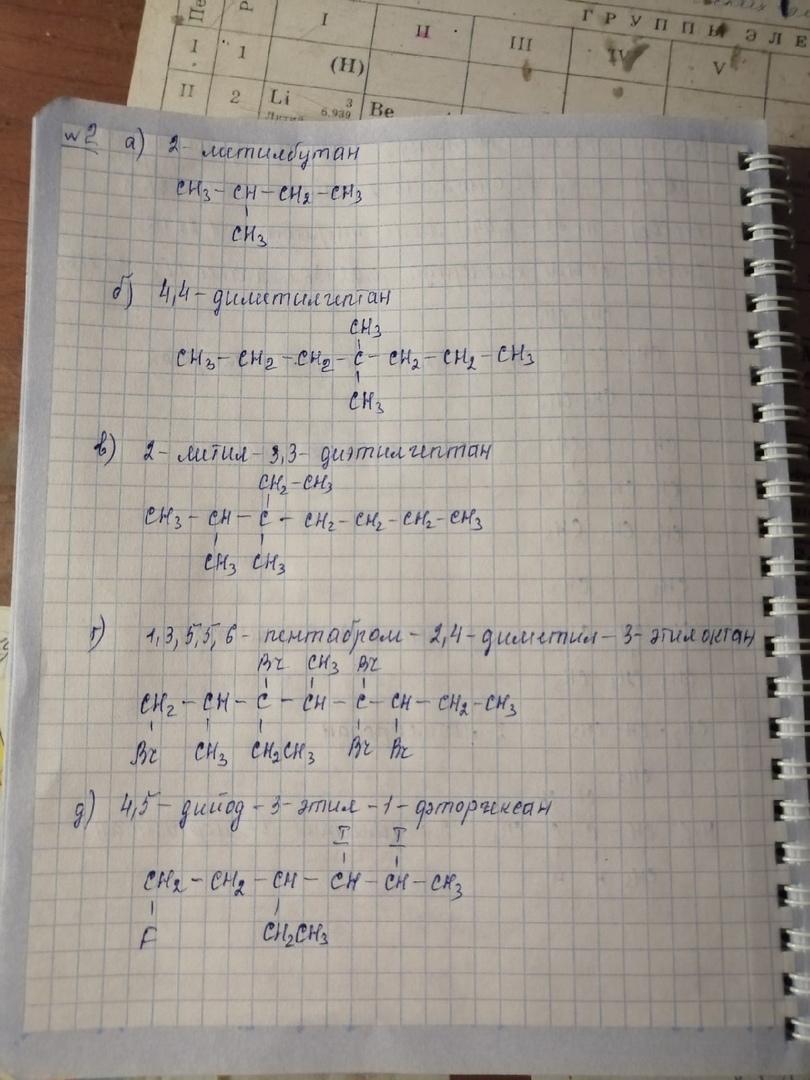 ГРУППЫ ЭЛЕ
Пе Р I II III IV V
I 1 (H)
II 2 Li 3 Be
Литий 6,939
№2 а) 2-метилбутан
CH3-CH-CH2-CH3
CH3
б) 4,4-диметилгептан
CH3
CH3-CH2-CH2-C-CH2-CH2-CH3
CH3
в) 2-метил-3,3-диэтилгептан
CH2-CH3
CH3-CH-C-CH2-CH2-CH2-CH3
CH3 CH3
г) 1,3,5,5,6-пентабром-2,4-диметил-3-этилоктан
Br CH3 Br
CH2-CH-C-CH-C-CH-CH2-CH3
Br CH3 CH2CH3 Br Br
д) 4,5-дийод-3-этил-1-фторгексан
I I
CH2-CH2-CH-CH-CH-CH3
F CH2CH3